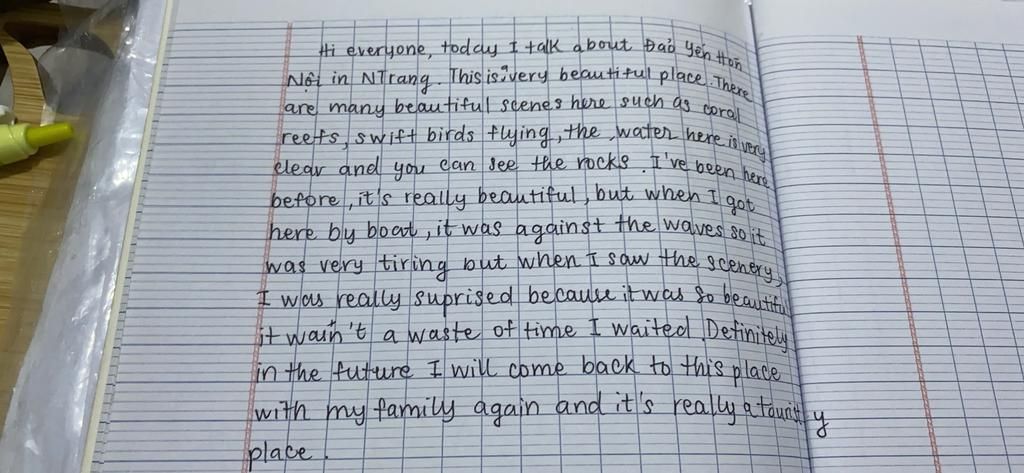 Hi everyone, today I talk about Đảo Yến Hòn
Nội in NTrang. This is a very beautiful place. There
are many beautiful scenes here such as coral
reefs, swift birds flying, the water here is very
clear and you can see the rocks. I've been here
before, it's really beautiful, but when I got
here by boat, it was against the waves so it
was very tiring but when I saw the scenery,
I was really suprised because it was so beautiful
it wasn't a waste of time I waited. Definitely
in the future I will come back to this place
with my family again and it's really a touristy
place.